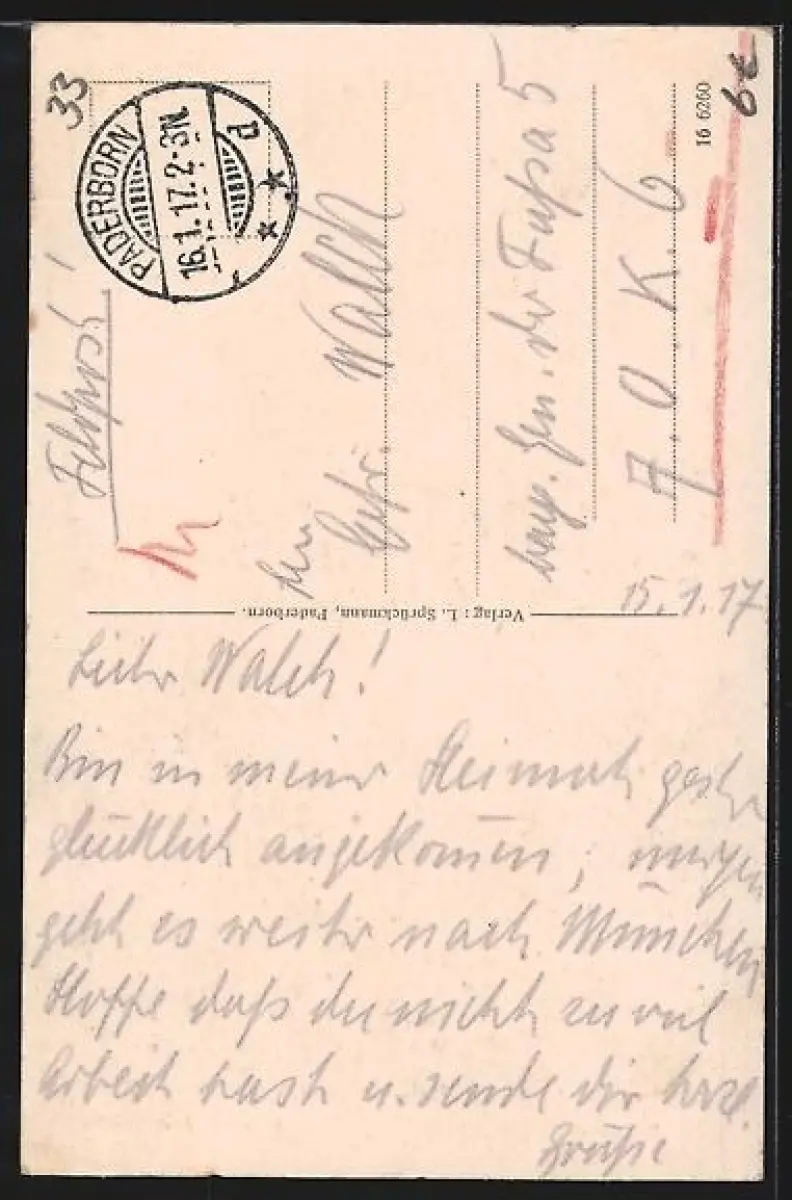 33
PADERBORN
16.1.17.2-3N.
d
* *
Feldpost!
An
Gefr. Walch
bayr. Gen. der Fußa 5
A. O. K. 6
16 6260
6€
Verlag: L. Sprückmann, Paderborn.
15.1.17
Lieber Walch!
Bin in meiner Heimat gestern
glücklich angekommen; morgen
geht es weiter nach München
Hoffe daß du nicht zu viel
Arbeit hast u. sende dir herzl.
Grüße